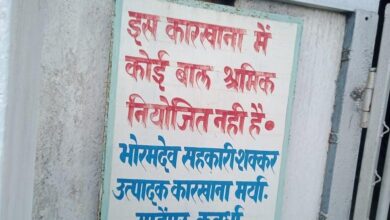 इस कारखाना में
कोई बाल श्रमिक
नियोजित नही है•
भोरमदेव सहकारी शक्कर
उत्पादक कारखाना मर्या.